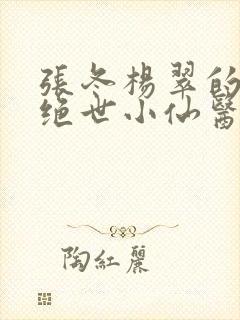 張冬楊翠的
绝世小仙醫
陶紅麗